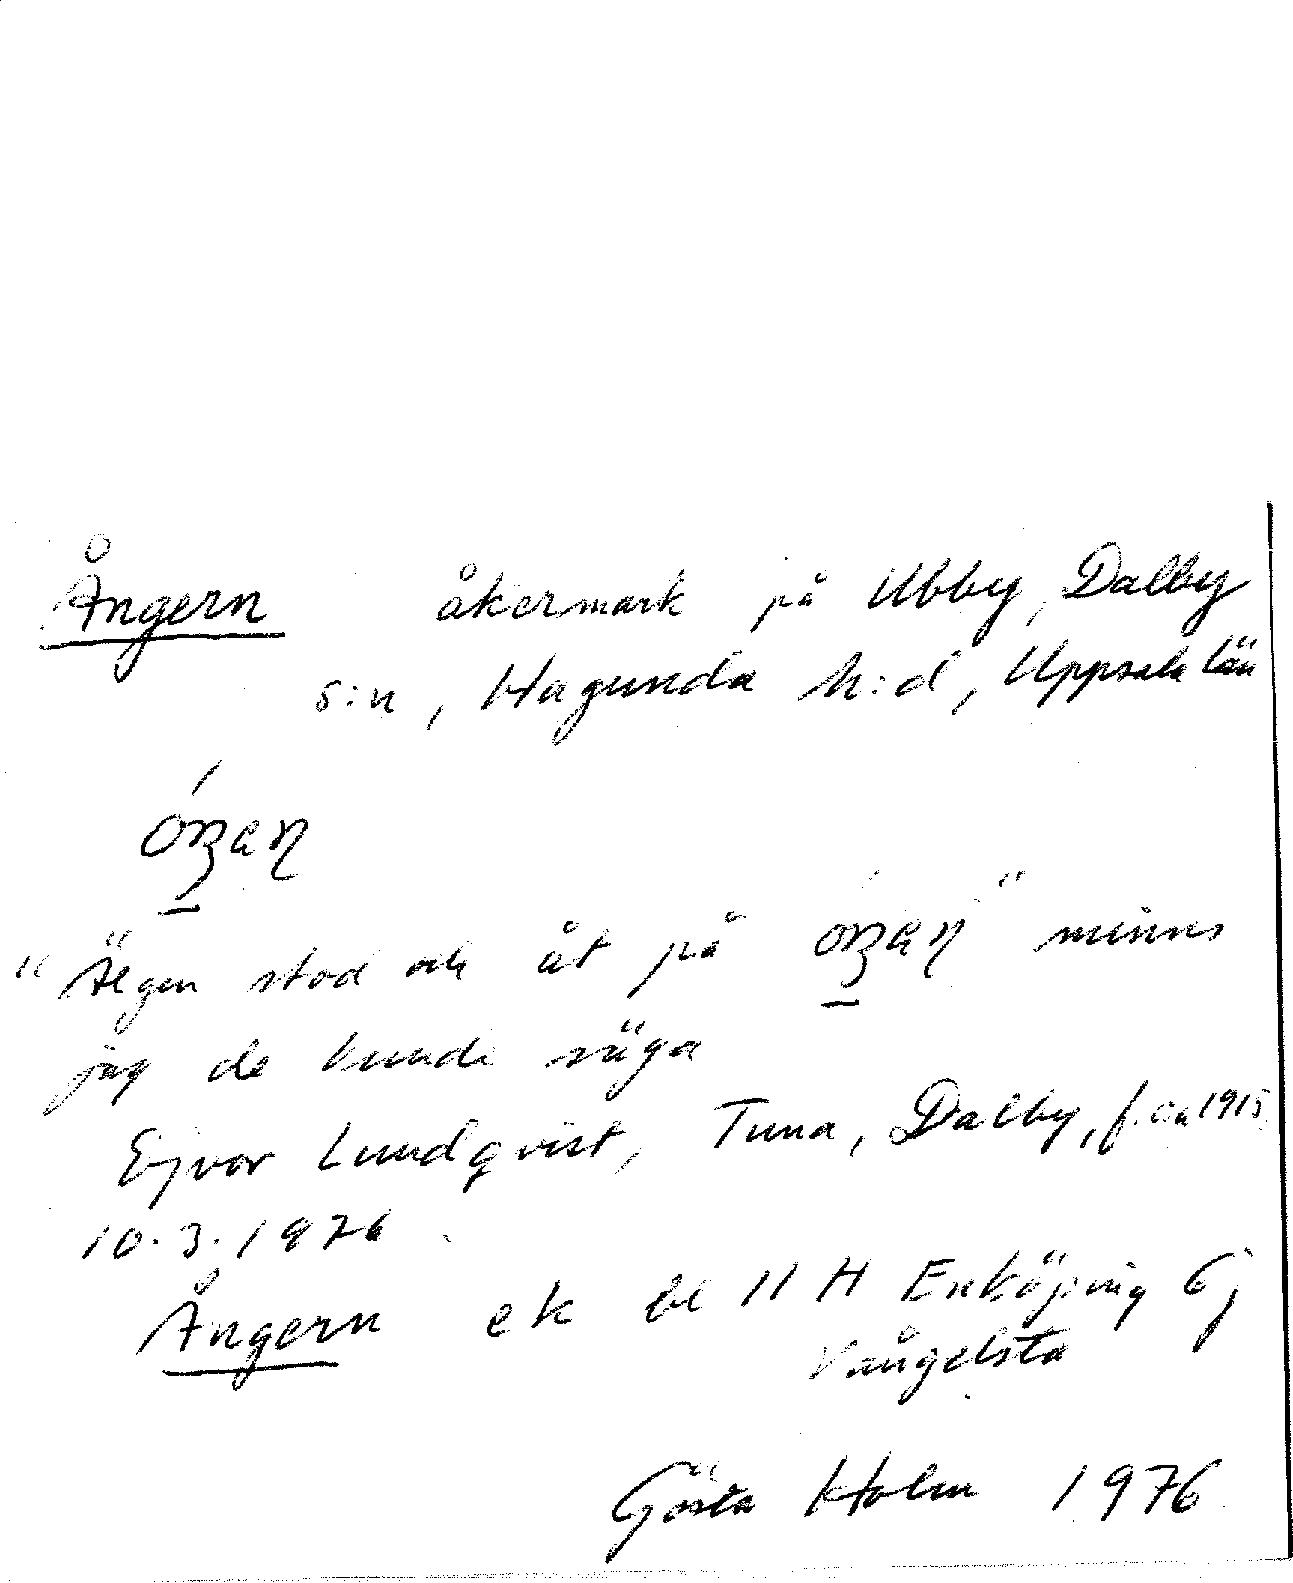 Ångern åkermark på Ubby, Dalby
s:n, Hagunda h:d, Uppsala län
"Älgen stod och åt på " minns
jag de kunde säga
Ejvor Lundqvist, Tuna, Dalby, f. ca 1915,
10.3.1976
Ångern ek bl 11 H Enköping 6j
Vångelsta
Gösta Holm 1976